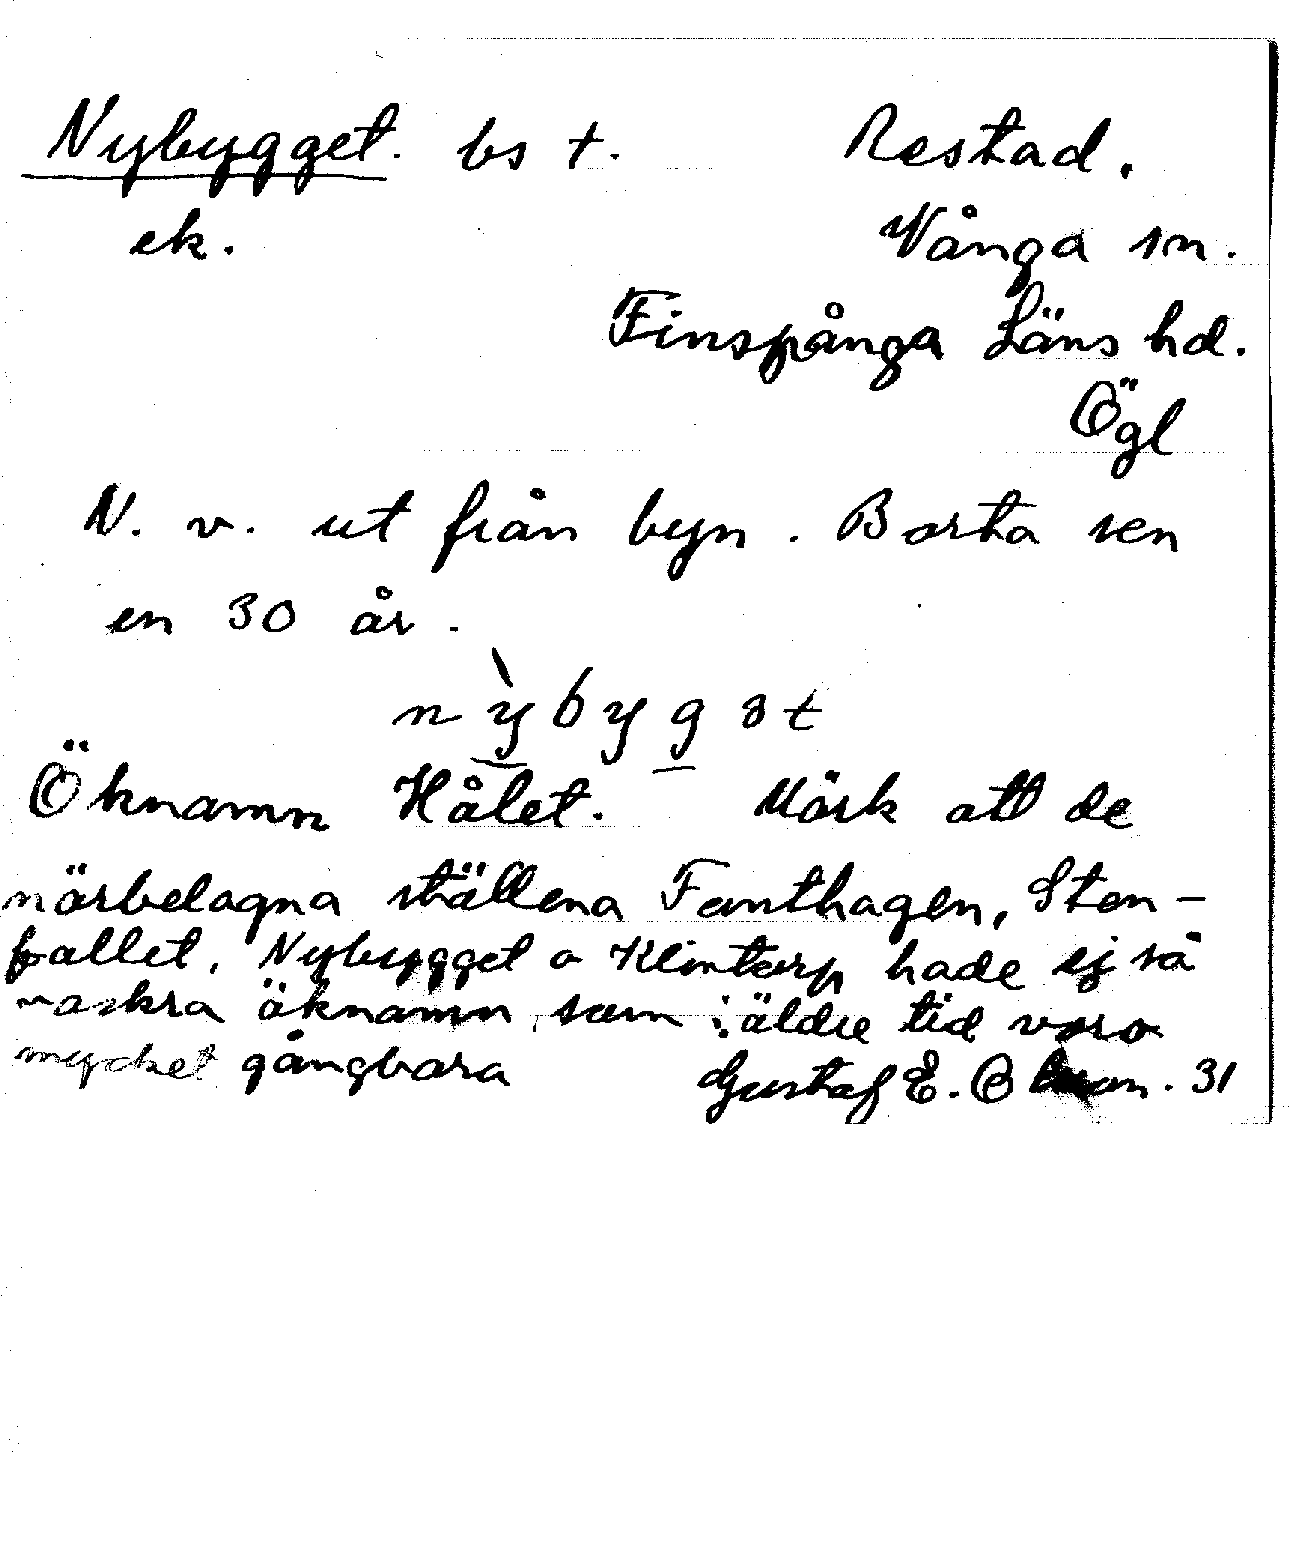 Nybygget. bs †. Restad.
ek. Vånga sn.
Finspånga Läns hd.
Ögl
N. v. ut från byn. Borta sen
en 30 år.
nỳbygət
Öknamn Hålet. Märk att de
närbelagna ställena Fanthagen, Sten-
pallet, Nybygget o Klintorp hade ej så
vackra öknamn som i äldre tid voro
mycket gångbara Gustaf E. Olsson. 31